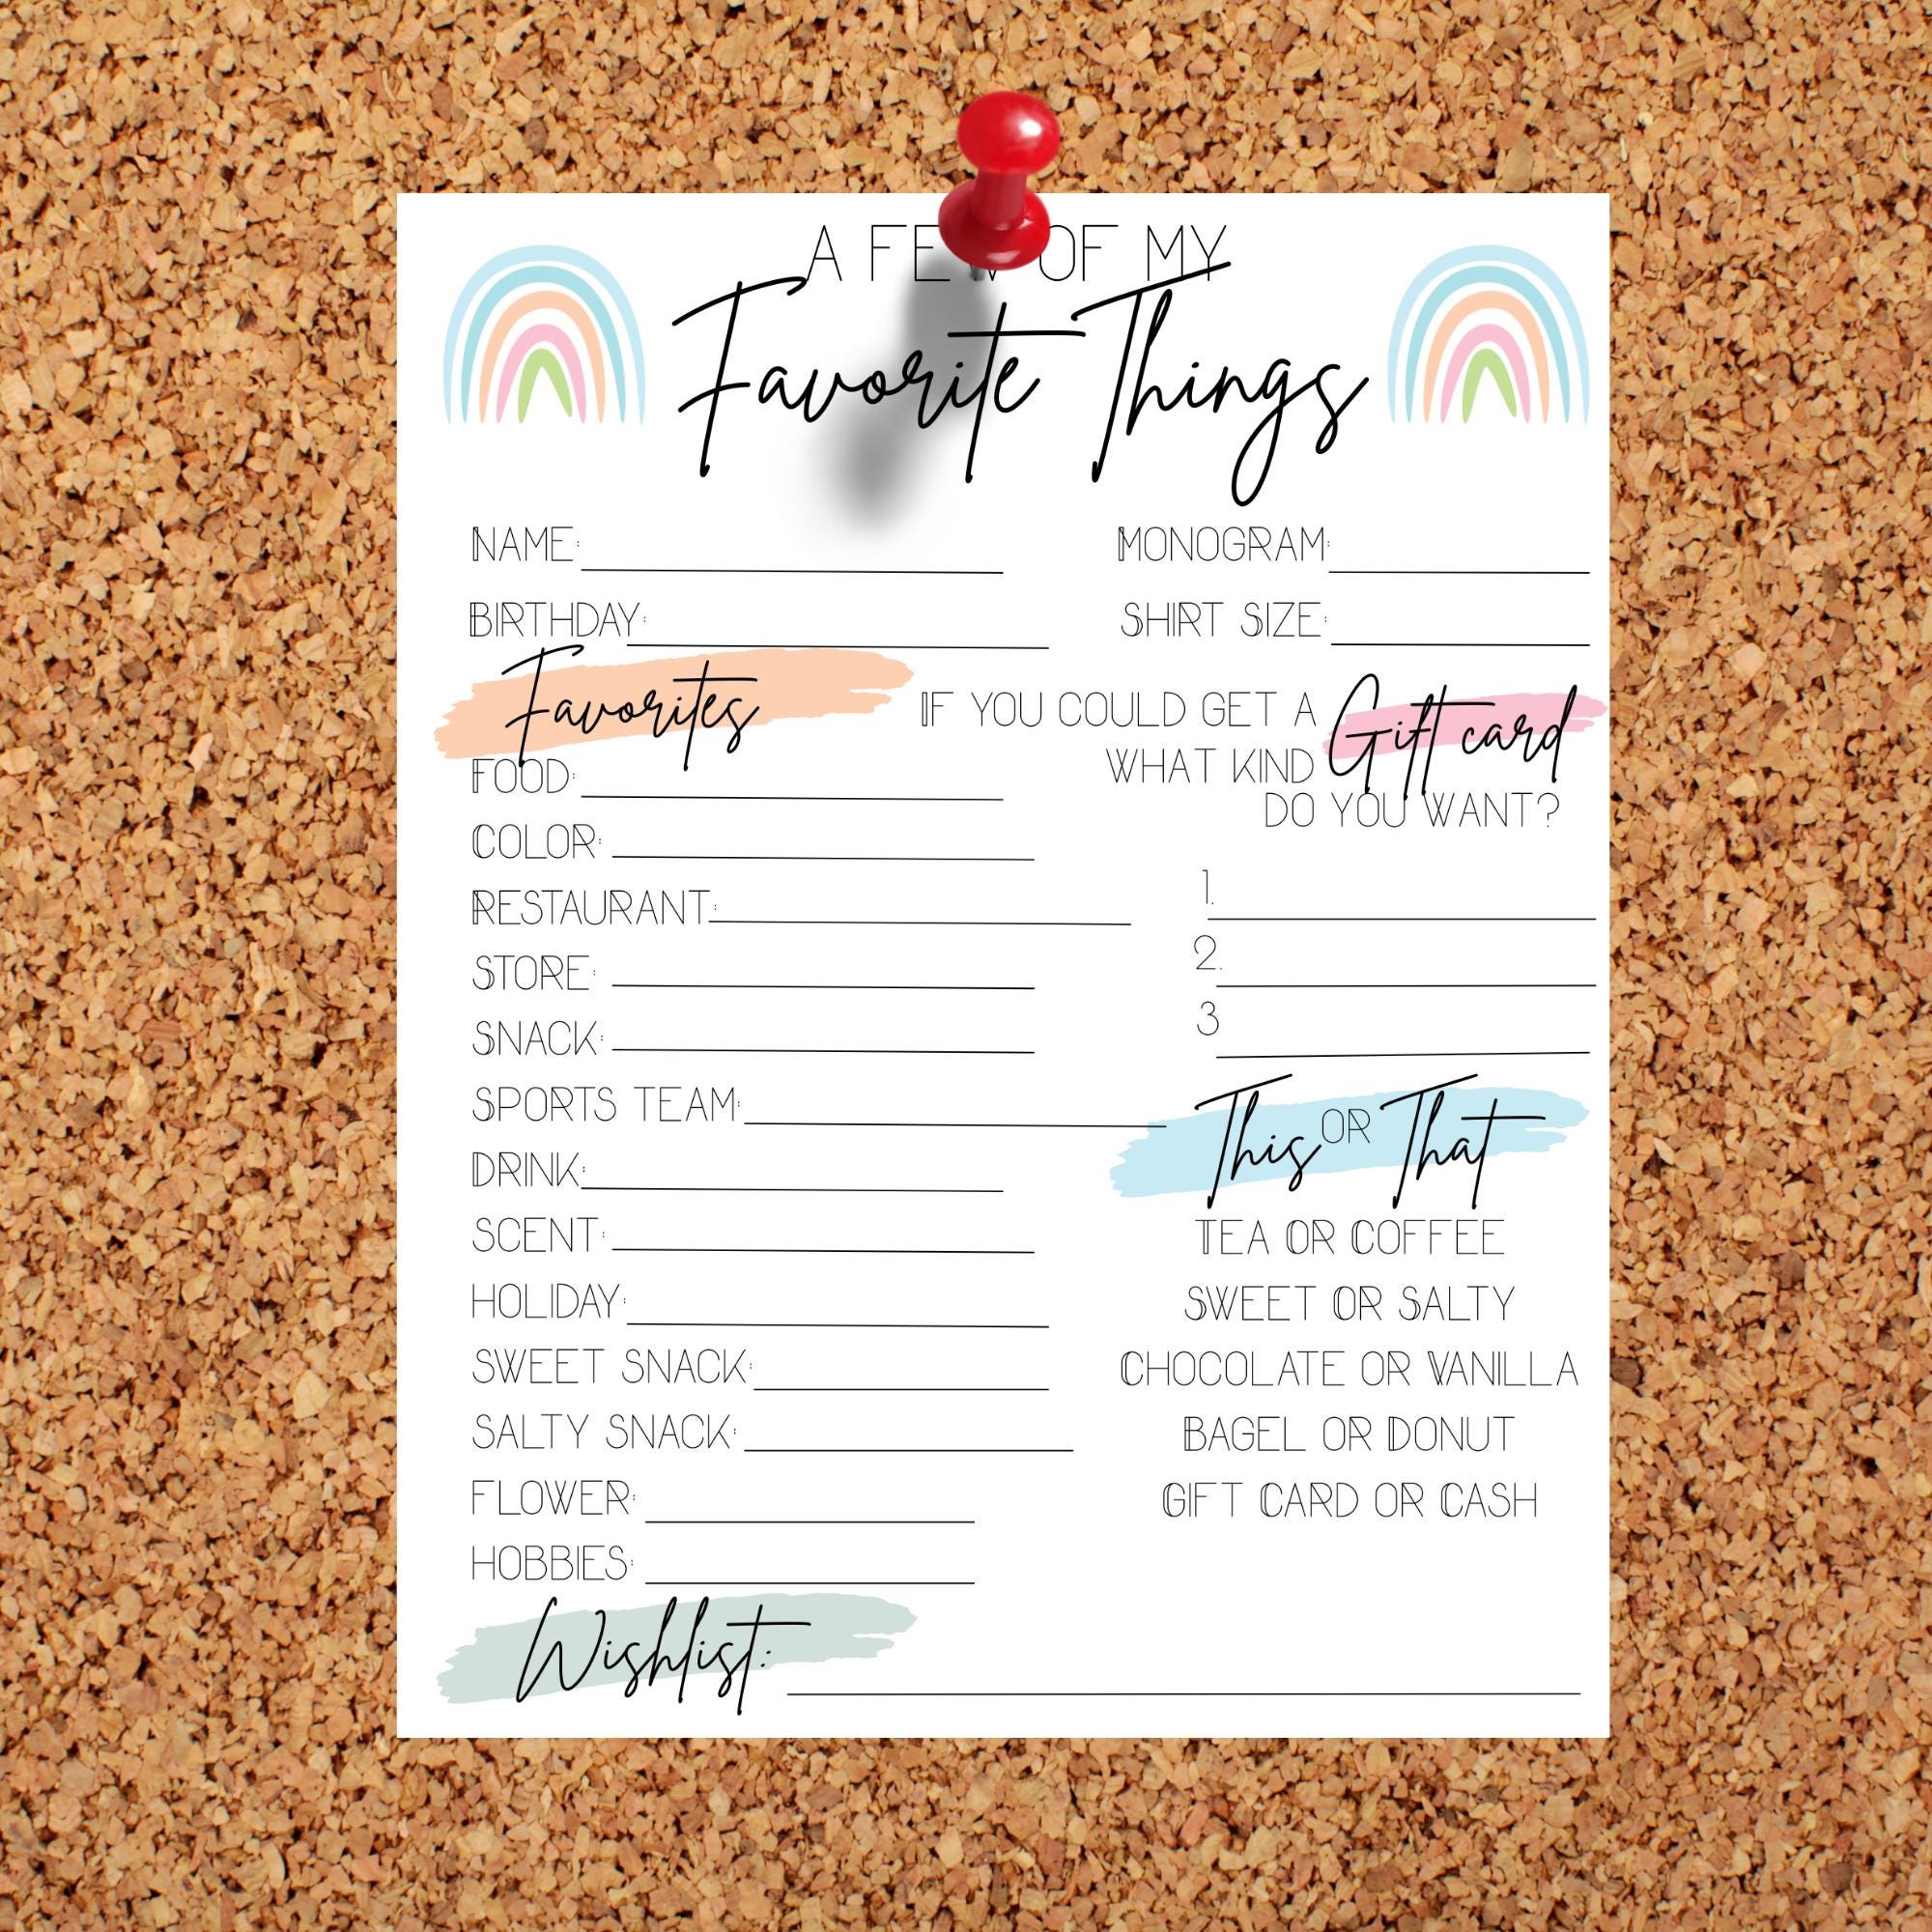 A FEW OF MY
Favorite Things
NAME:
MONOGRAM:
BIRTHDAY:
SHIRT SIZE:
Favorites
FOOD:
COLOR:
RESTAURANT:
STORE:
SNACK:
SPORTS TEAM:
DRINK:
SCENT:
HOLIDAY:
SWEET SNACK:
SALTY SNACK:
FLOWER:
HOBBIES:
IF YOU COULD GET A Gift card
WHAT KIND
DO YOU WANT?
1.
2.
3
This OR That
TEA OR COFFEE
SWEET OR SALTY
CHOCOLATE OR VANILLA
BAGEL OR DONUT
GIFT CARD OR CASH
Wishlist: